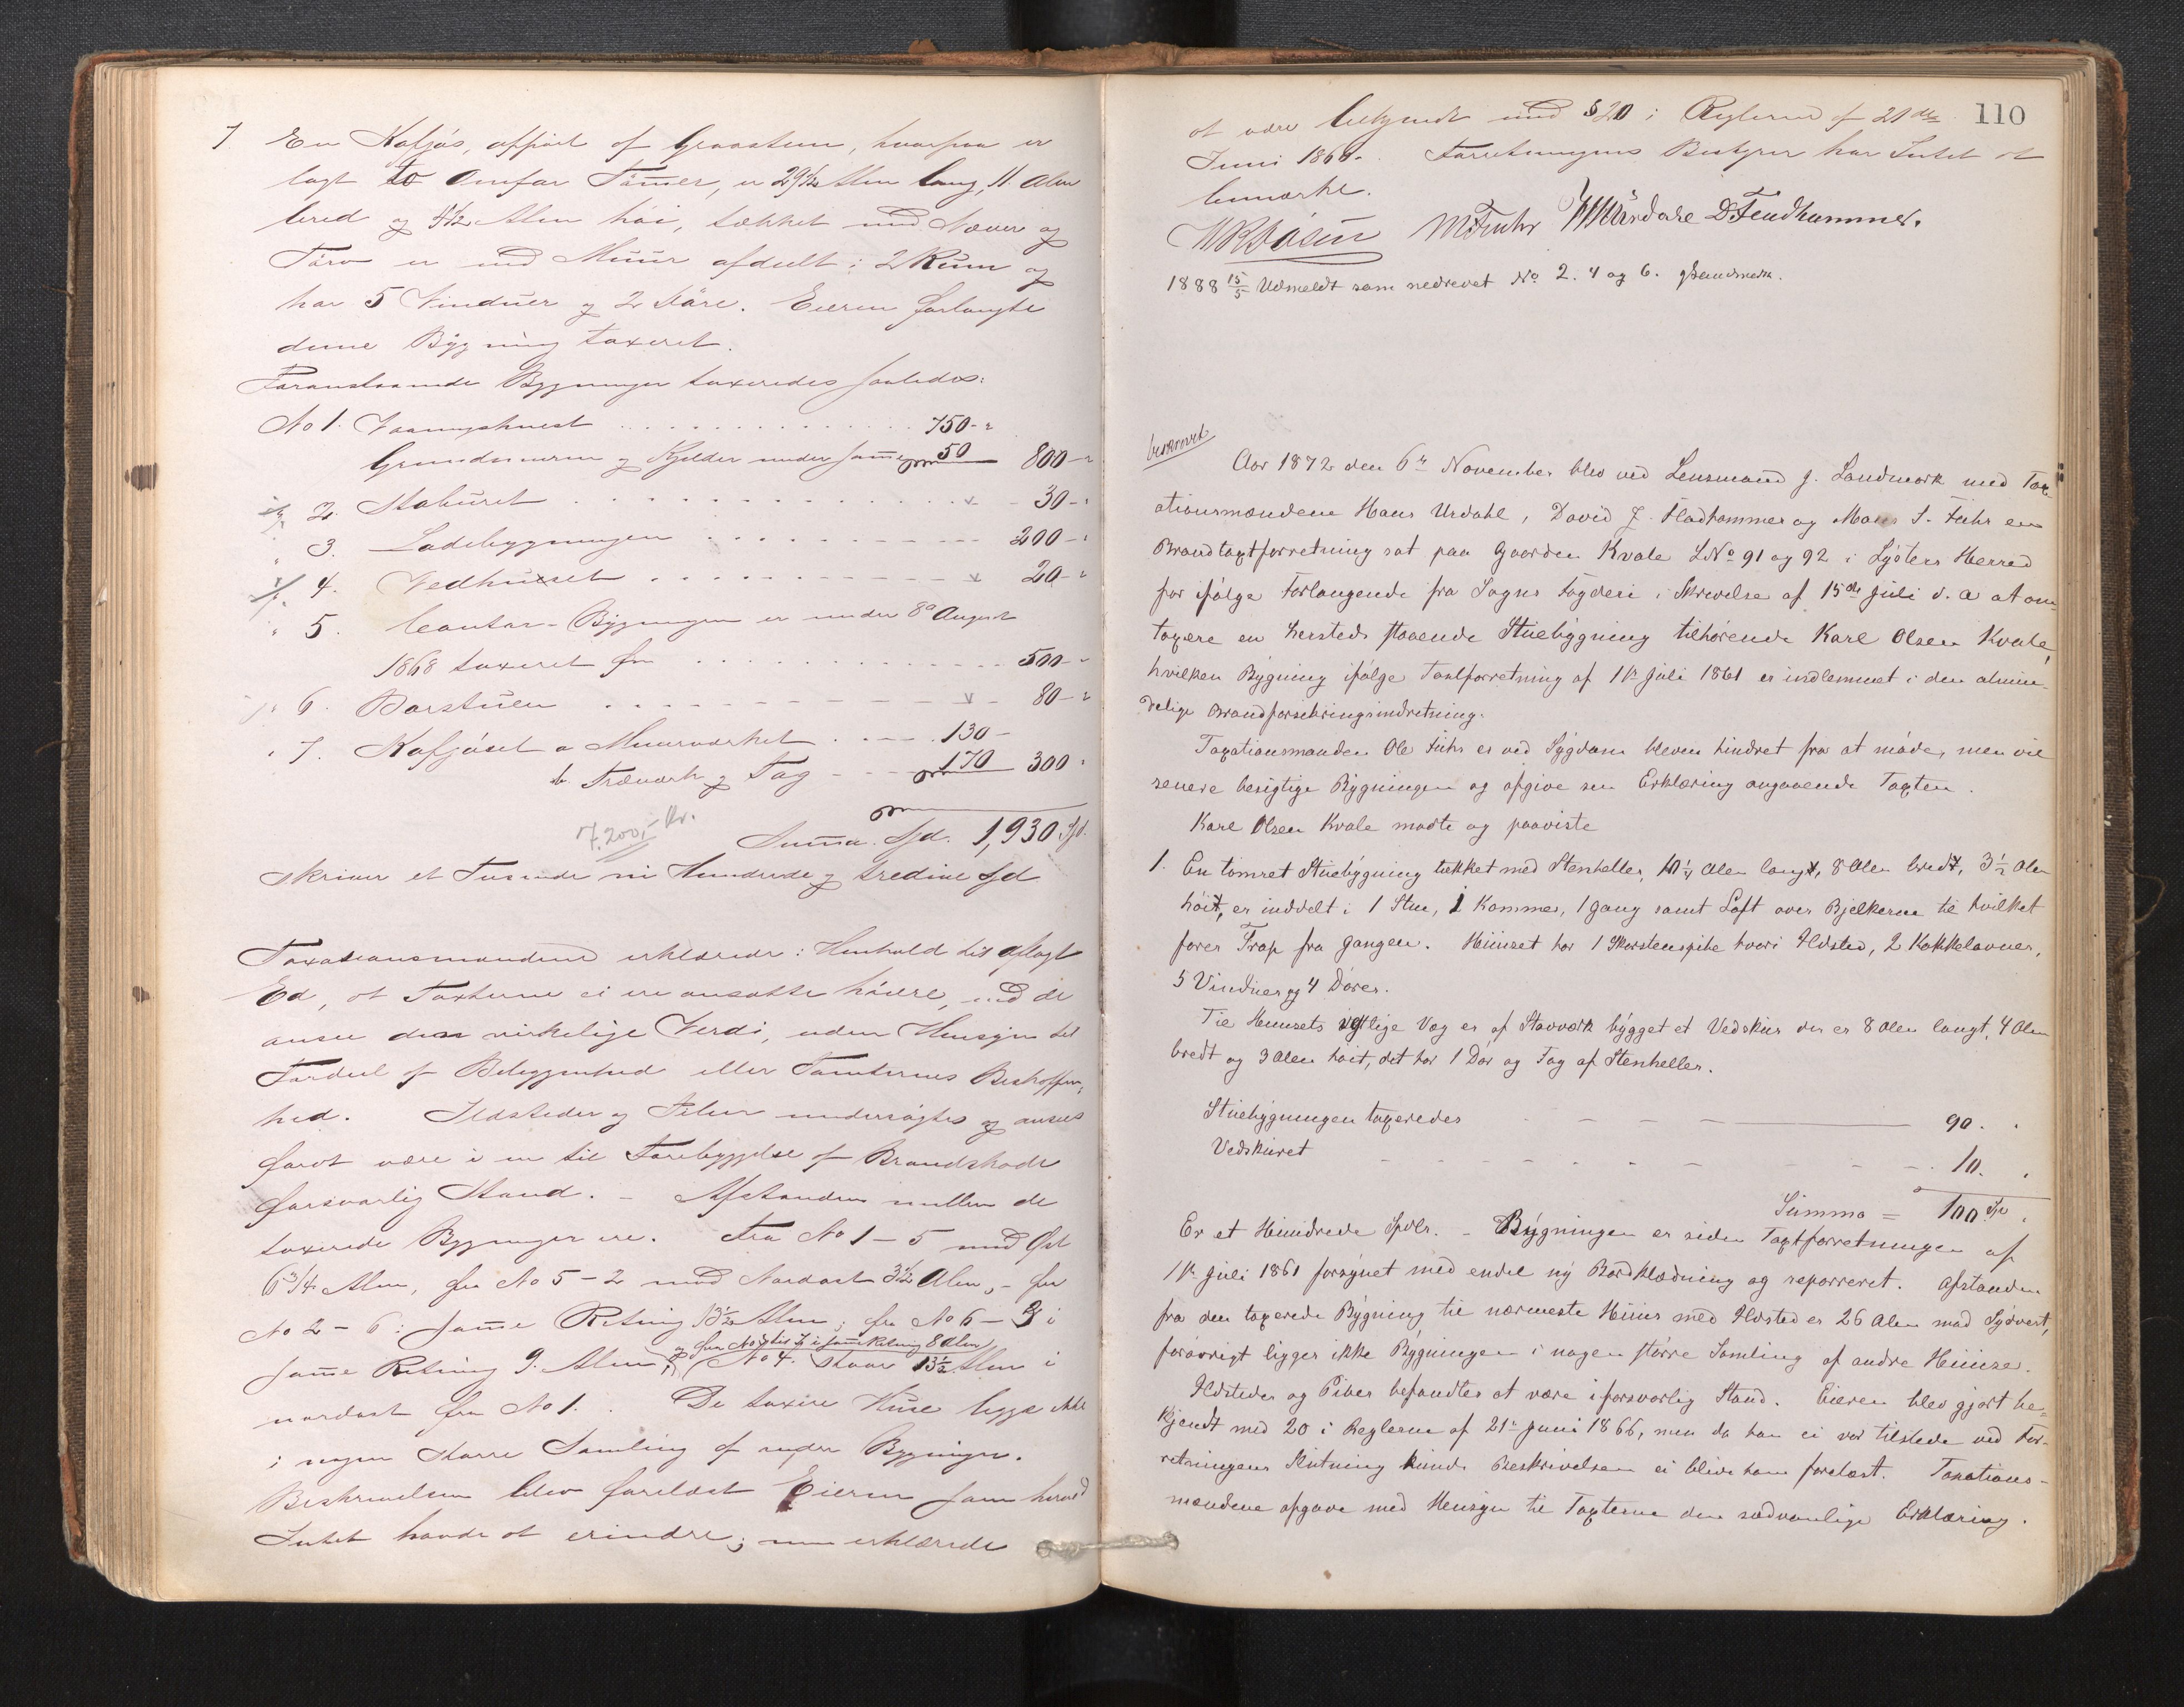 7 En Kofjøs, opført af Graasteen, hvorpaa er
lagt to Omfar Tømer, er 29½ Alen lang, 11 Alen
bred og 4½ Alen høi, tækket med Næver og
Tørv er med Muur afdeelt i 2 Rum og
har 5 Vinduer og 2 Døre. Eieren forlangte
denne Bygning taxeret.
Foranstaaende Bygninger taxeredes saaledes:
No 1. Vaaningshuset 750-
Grundmuren og Kjelder under samme 50 800-
2. Staburet 30-
3. Ladebygningen 200-
4. Vedhuset 20-
5. Contor-Bygningen er under 8de August
1868 taxeret for 500-
6. Borstuen 80-
7. Kofjøset a Muurværket 130-
b. Træværk og Tag 170 300
7,200,- Kr.
Suma Spd. 1,930 Spd.
skriver et Tusinde ni Hundrede og tredive Spd
Taxationsmændene erklærede i Henhold til aflagt
Ed, at Taxterne ei ere ansatte høiere, end de
ansee dens virkelige Verdi, uden Hensyn til
Fordeel af Beliggenhed eller Tomternes Beskaffen-
hed. Ildsteder og Piber undersøgtes og ansees
for at være i en til Forebyggelse af Brandskade
forsvarlig Stand. - Afstanden mellem de
taxerede Bygninger ere. Fra No 1-5 mod Øst
6¾ Alen, fra No 5-2 mod Nordost 3½ Alen, - fra
No 2-6 i same Retning 13½ Alen; fra No 6-3 i
og fra No 3 til 7 i same Retning 8 Alen
same Retning 9 Alen; No 4. staar 13½ Alen i
nordost fra No 1. De taxerte Huse ligge ikke
i nogen større Samling af andre Bygninger.
Beskrivelsen blev forelæst Eieren som herved
Intet havde at erindre; men erklærede
110
at være bekjendt med § 20 i Reglerne af 21de
Juni 1866. Forretningens Bestyrer har Intet at
bemærke.
M Fuhr H Ursdahl D Fladhammer.
1888 15/5 Udmeldt som nedrevet No 2. 4 og 6. Landmark.
beskrevet
Aar 1872 den 6te November blev ved Lensmand J. Landmark med Tax-
ationsmændene Hans Urdahl, David J. Fladhammer og Mons T. Fuhr en
Brandtaxtforretning sat paa Gaarden Kvale LNo 91 og 92 i Lysters Herred
for ifølge Forlangende fra Sogns Fogderi i Skrivelse af 15de Juli d. a at om-
taxere en hersteds staaende Stuebygning tilhørende Karl Olsen Kvale,
hvilken Bygning ifølge Taxtforretning af 1ste Juli 1861 er indlemmet i den almin-
delige Brandforsikringsindretning.
Taxationsmanden Ole Fuhr er ved Sygdom bleven hindret fra at møde, men vil
senere besigtige Bygningen og afgive sin Erklæring angaaende Taxten.
Karl Olsen Kvale mødte og paaviste
1. En tømret Stuebygning tækket med Stenheller, 10¼ Alen langt, 8 Alen bredt, 3½ Alen
høit, er inddelt i 1 Stue, 1 Kammer, 1 Gang samt Loft over Bjelkerne til hvilket
fører Trap fra Gangen. Huuset har 1 Skorstenspibe hvori Ildsted, 2 Kakkelovner,
5 Vinduer og 4 Døre.
Til Huusets vestlige Væg er af Stavværk bygget et Vedskur der er 8 Alen langt, 4 Alen
bredt og 3 Alen høit, det har 1 Dør og Tag af Stenheller.
Stuebygningen taxeredes 90.
Vedskuret 10.
Summa = 100 Spd.
Er et Hundrede Spdlr. - Bygningen er siden Taxtforretningen af
1ste Juli 1861 forsynet med endel ny Bordklædning og reparreret. Afstanden
fra den taxerede Bygning til nærmeste Huus med Ildsted er 26 Alen mod Sydvest,
forøvrigt ligger ikke Bygningen i nogen større Samling af andre Huuse.
Ildsteder og Piber befandtes at være i forsvarlig Stand. Eieren blev gjort be-
kjendt med 20 i Reglerne af 21de Juni 1866, men da han ei var tilstede ved For-
retningens Slutning kunde Beskrivelsen ei blive ham forelæst. Taxations-
mændene afgave med Hensyn til Taxterne den sædvanlige Erklæring.